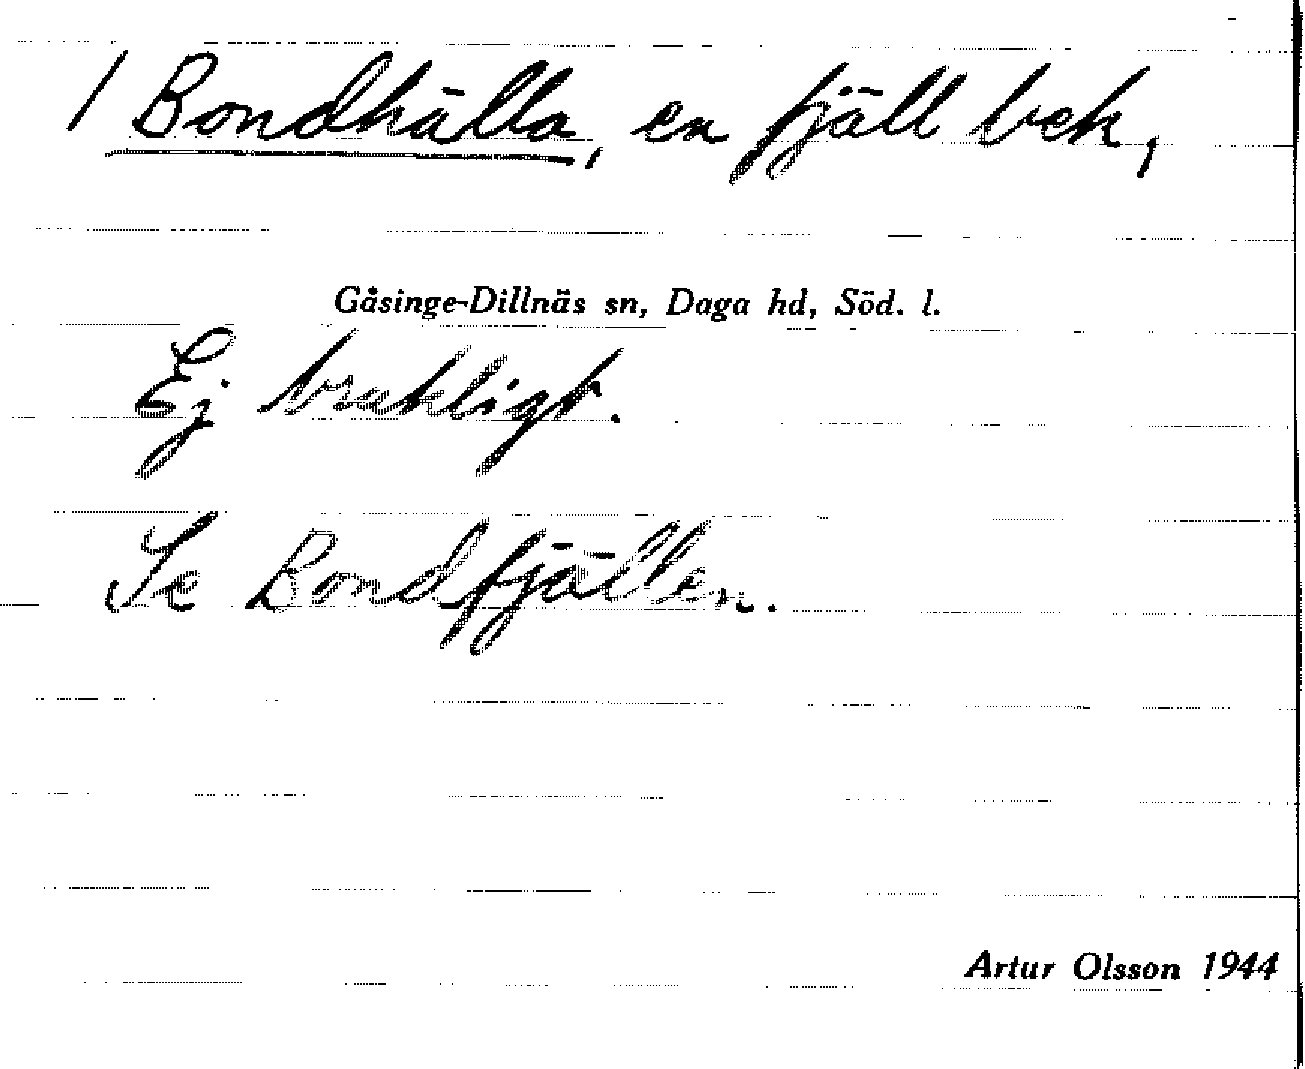 / Bondhälla, en fjäll bek,
Gåsinge-Dillnäs sn, Daga hd, Söd. l.
Ej brukligt.
Se Bondfjällen.
Artur Olsson 1944